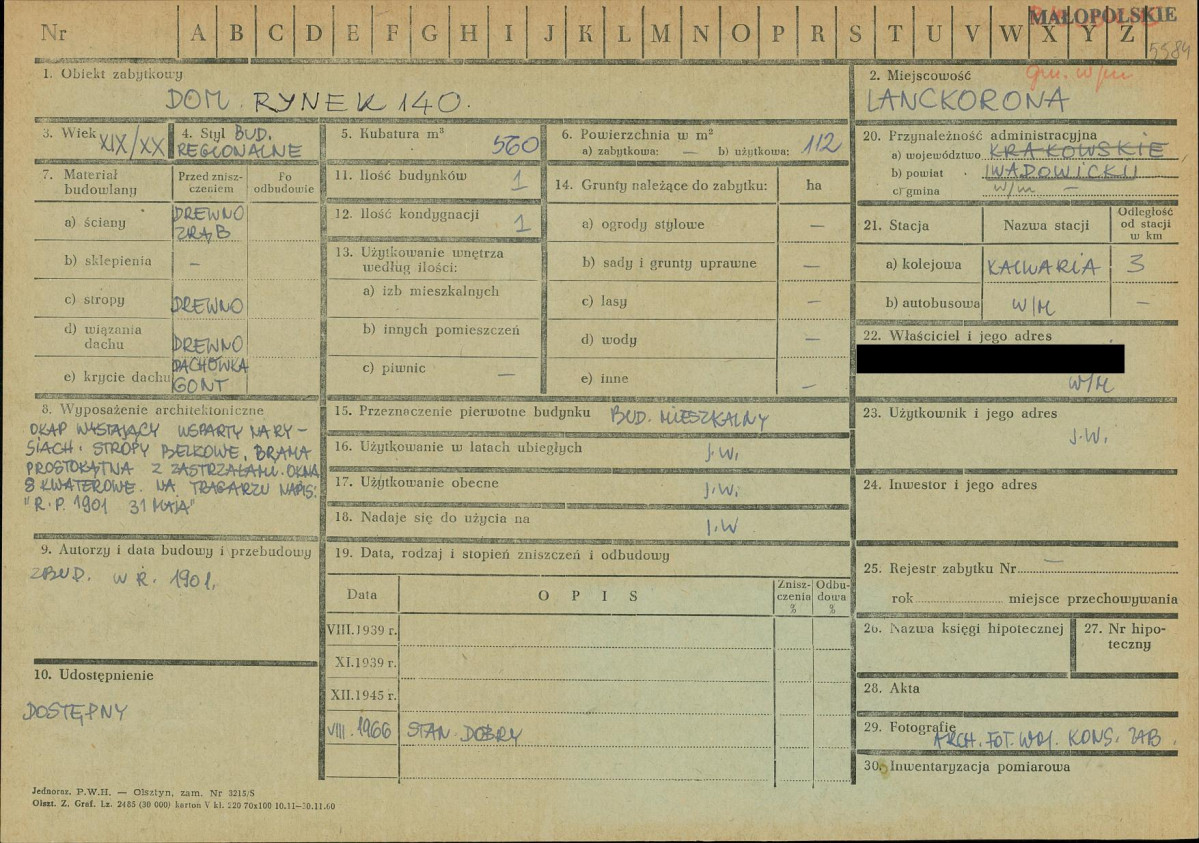 Nr A B C D E F G H I J K L M N O P R S T U V W X Y Z
MAŁOPOLSKIE
5584
1. Obiekt zabytkowy
DOM. RYNEK 140.
2. Miejscowość
gm. w/m
LANCKORONA
3. Wiek XIX/XX
4. Styl BUD.
REGIONALNE
5. Kubatura m³
560
6. Powierzchnia w m²
a) zabytkowa: — b) użytkowa: 112
20. Przynależność administracyjna
a) województwo KRAKOWSKIE
b) powiat WADOWICKI
c) gmina w/m —
7. Materiał
budowlany
Przed znisz-
czeniem
Po
odbudowie
a) ściany
DREWNO
ZRĄB
b) sklepienia —
c) stropy DREWNO
d) wiązania
dachu DREWNO
e) krycie dachu
DACHÓWKA
GONT
11. Ilość budynków 1
12. Ilość kondygnacji 1
13. Użytkowanie wnętrza
według ilości:
a) izb mieszkalnych
b) innych pomieszczeń
c) piwnic —
14. Grunty należące do zabytku: ha
a) ogrody stylowe —
b) sady i grunty uprawne —
c) lasy —
d) wody —
e) inne —
21. Stacja
Nazwa stacji
Odległość
od stacji
w km
a) kolejowa KALWARIA 3
b) autobusowa W/M —
22. Właściciel i jego adres
W/M
8. Wyposażenie architektoniczne
OKAP WYSTAJĄCY WSPARTY NA RY-
SIACH. STROPY BELKOWE, BRAMA
PROSTOKĄTNA Z ZASTRZAŁAMI. OKNA
8 KWATEROWE. NA TRAGARZU NAPIS:
"R.P. 1901 31 MAJA"
15. Przeznaczenie pierwotne budynku BUD. MIESZKALNY
16. Użytkowanie w latach ubiegłych J.W.
17. Użytkowanie obecne J.W.
18. Nadaje się do użycia na J.W
23. Użytkownik i jego adres
J.W.
24. Inwestor i jego adres
9. Autorzy i data budowy i przebudowy
ZBUD. W R. 1901.
19. Data, rodzaj i stopień zniszczeń i odbudowy
Data
O P I S
Znisz-
czenia
%
Odbu-
dowa
%
VIII.1939 r.
XI.1939 r.
XII.1945 r.
VIII.1966 STAN DOBRY
25. Rejestr zabytku Nr —
rok miejsce przechowywania
26. Nazwa księgi hipotecznej
27. Nr hipo-
teczny
10. Udostępnienie
DOSTĘPNY
28. Akta
29. Fotografie
ARCH. FOT. WOJ. KONS. ZAB.
30. Inwentaryzacja pomiarowa
Jednoraz. P.W.H. — Olsztyn, zam. Nr 3215/S
Olszt. Z. Graf. Lz. 2485 (30 000) karton V kl. 220 70x100 10.11—30.11.60